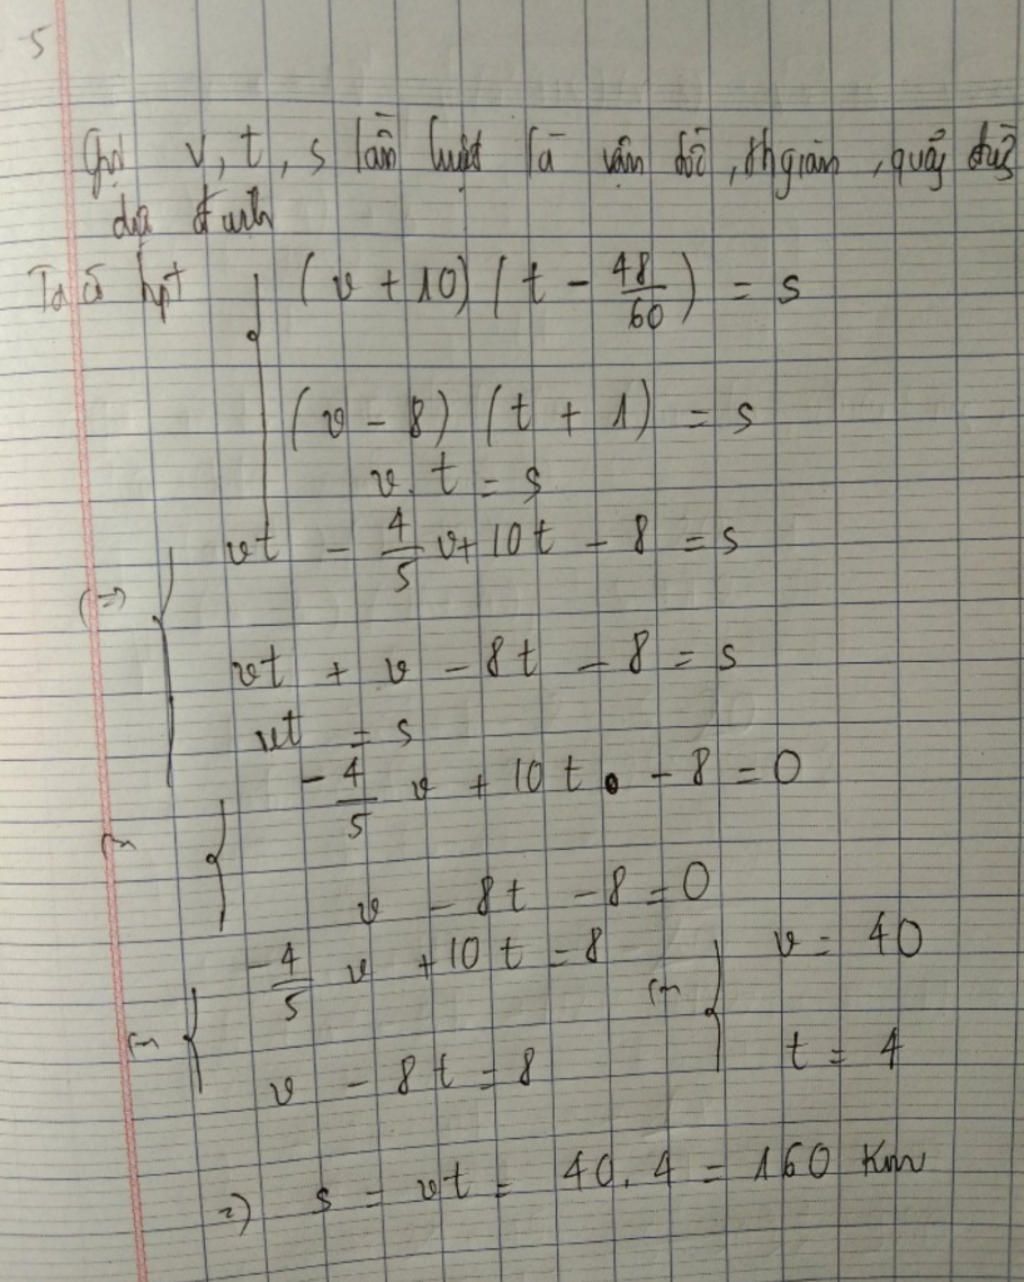 5
Gọi v, t, s lần lượt là vận tốc, thgian, quãng đường
dự định
Ta có hpt (v + 10) (t - 48/60) = s
(v - 8) (t + 1) = s
v. t = s
vt - 4/5 v + 10t - 8 = s
(=)
vt + v - 8t - 8 = s
vt = s
-4/5 v + 10t - 8 = 0
v - 8t - 8 = 0
-4/5 v + 10t = 8
v - 8t = 8
v = 40
t = 4
=) s = vt = 40. 4 = 160 Km